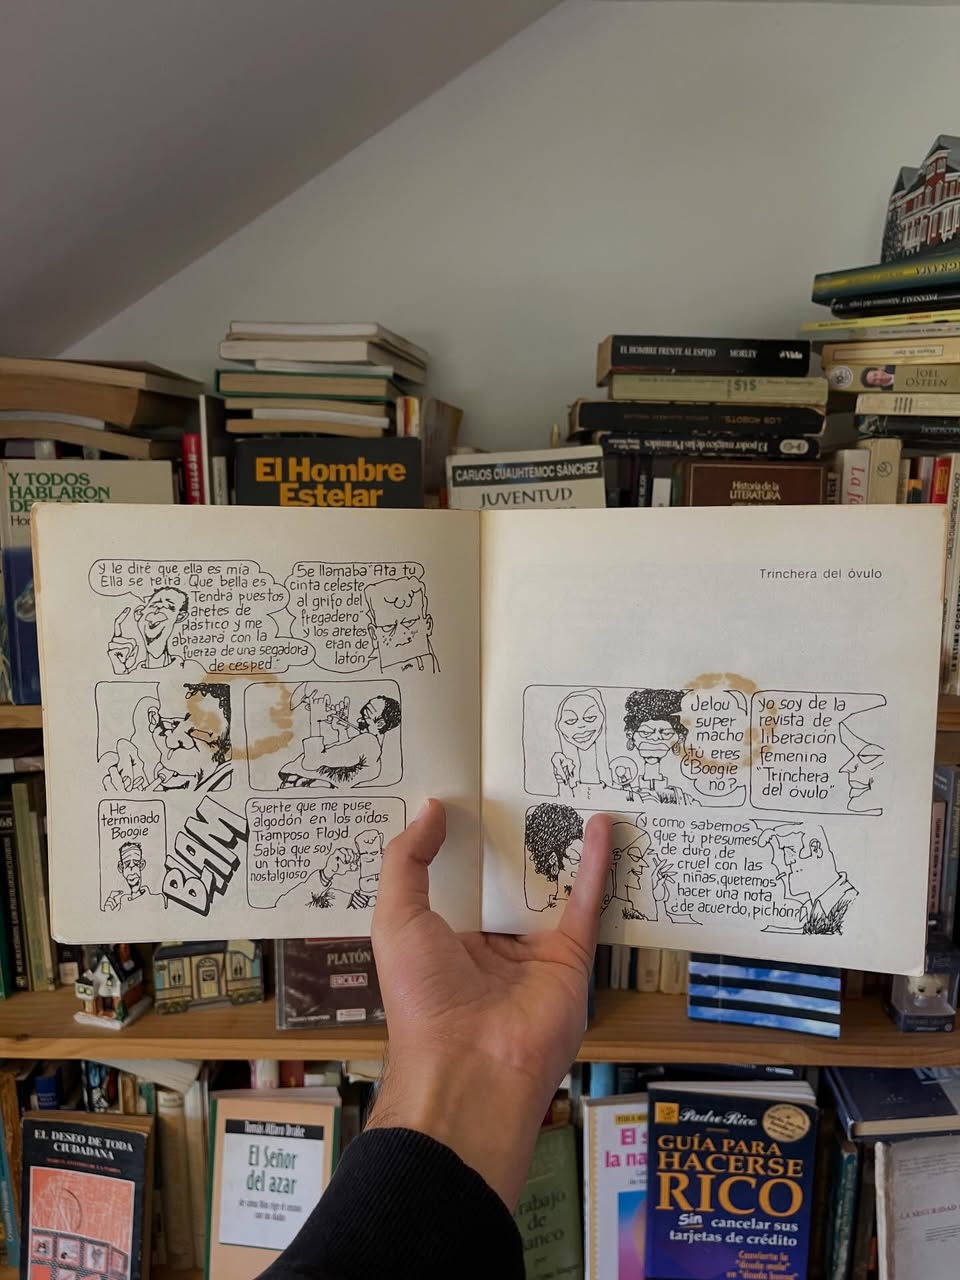 EL HOMBRE FRENTE AL ESPEJO MORLEY Vida
$15
LOS ROBOTS
El poder mágico de las Pirámides
JOEL
OSTEEN
Y TODOS
HABLARON
DE
El Hombre
Estelar
CARLOS CUAUHTEMOC SÁNCHEZ
JUVENTUD
Historia de la
LITERATURA
y le diré que ella es mía
Ella se reirá. Que bella es
Tendrá puestos
aretes de
plástico y me
abrazará con la
fuerza de una segadora
de césped"
Se llamaba "Ata tu
cinta celeste
al grifo del
fregadero"
y los aretes
eran de
latón
He
terminado
Boogie
BLAM
Suerte que me puse
algodón en los oídos.
Tramposo Floyd.
Sabía que soy
un tonto
nostalgioso
Trinchera del óvulo
Jelou
super
macho
¿tú eres
Boogie
no?
yo soy de la
revista de
liberación
femenina
"Trinchera
del óvulo"
como sabemos
que tú presumes
de duro, de
cruel con las
niñas, queremos
hacer una nota
¿de acuerdo, pichón?
PLATÓN
ERCILLA
EL DESEO DE TODA
CIUDADANA
Tomás Alfaro Drake
El Señor
del azar
Trabajo
de
Padre Rico
GUÍA PARA
HACERSE
RICO
Sin cancelar sus
tarjetas de crédito
Convierta la
"deuda mala"
en "deuda buena"